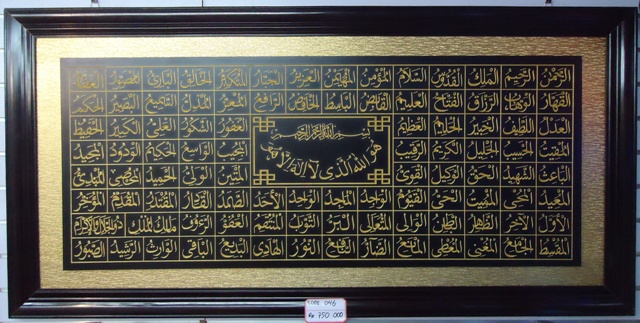 الرحمن الرحيم الملك القدوس السلام المؤمن المهيمن العزيز الجبار المتكبر الخالق البارئ المصور الغفار
القهار الوهاب الرزاق الفتاح العليم القابض الباسط الخافض الرافع المعز المذل السميع البصير الحكم
العدل اللطيف الخبير الحليم العظيم الغفور الشكور العلي الكبير الحفيظ
بسم الله الرحمن الرحيم
المقيت الحسيب الجليل الكريم الرقيب المجيب الواسع الحكيم الودود المجيد
هو الله الذي لا إله إلا هو
الباعث الشهيد الحق الوكيل القوي المتين الولي الحميد المحصي المبدئ
المعيد المحيي المميت الحي القيوم الواجد الماجد الواحد الأحد الصمد القادر المقتدر المقدم المؤخر
الأول الآخر الظاهر الباطن الوالي المتعالي البر التواب المنتقم العفو الرءوف مالك الملك ذو الجلال والإكرام
المقسط الجامع الغني المغني المعطي المانع الضار النافع النور الهادي البديع الباقي الوارث الرشيد الصبور
CODE 046
Rp 750 000